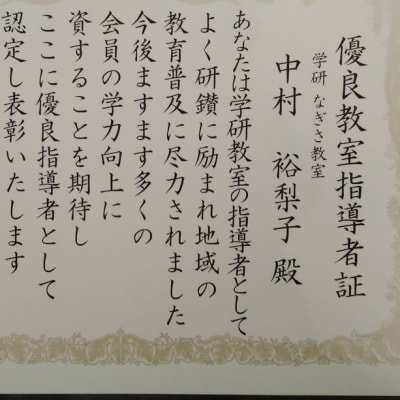 優良教室指導者証
学研 なぎさ教室
中村 裕梨子 殿
あなたは学研教室の指導者として
よく研鑽に励まれ地域の
教育普及に尽力されました
今後ますます多くの
会員の学力向上に
資することを期待し
ここに優良指導者として
認定し表彰いたします